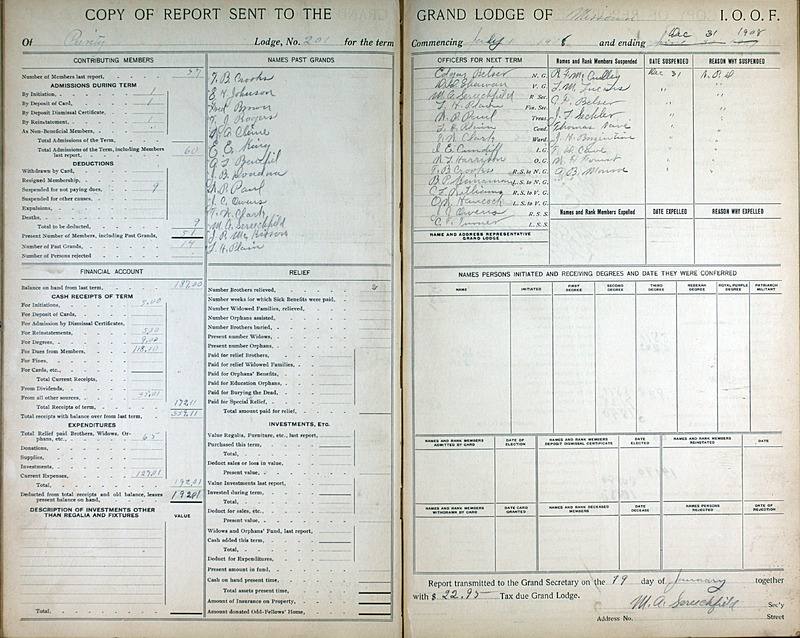 COPY OF REPORT SENT TO THE
Of Purity Lodge, No. 201 for the term
CONTRIBUTING MEMBERS
Number of Members last report, 57
ADMISSIONS DURING TERM
By Initiation, 1
By Deposit of Card, 1
By Deposit Dismissal Certificate,
By Reinstatement, 1
As Non-Beneficial Members,
Total Admissions of the Term,
Total Admissions of the Term, including Members last report, 60
DEDUCTIONS
Withdrawn by Card,
Resigned Membership,
Suspended for not paying dues, 9
Suspended for other causes,
Expulsions,
Deaths,
Total to be deducted, 9
Present Number of Members, including Past Grands, 51
Number of Past Grands, 14
Number of Persons rejected
NAMES PAST GRANDS
T. B. Crooks
E. H. Johnson
Brown
T. J. Rogers
E. E. King
J. B. Goodman
N. P. Paul
J. C. Owens
T. N. Clark
M. A. Screechfield
L. H. Plain
FINANCIAL ACCOUNT
Balance on hand from last term, 187.00
CASH RECEIPTS OF TERM
For Initiations, 5.00
For Deposit of Cards,
For Admission by Dismissal Certificates,
For Reinstatements, 5.00
For Degrees, 9.00
For Dues from Members, 118.10
For Fines,
For Cards, etc.,
Total Current Receipts,
From Dividends,
From all other sources, 35.01
Total Receipts of term, 172.11
Total receipts with balance over from last term, 359.11
EXPENDITURES
Total Relief paid Brothers, Widows, Orphans, etc.,
Donations,
Supplies,
Investments,
Current Expenses,
Total,
Deducted from total receipts and old balance, leaves present balance on hand, 192.01
DESCRIPTION OF INVESTMENTS OTHER THAN REGALIA AND FIXTURES
VALUE
Total,
RELIEF
Number Brothers relieved,
Number weeks for which Sick Benefits were paid,
Number Widowed Families, relieved,
Number Orphans assisted,
Number Brothers buried,
Present number Widows,
Present number Orphans,
Paid for relief Brothers,
Paid for relief Widowed Families,
Paid for Orphans' Benefits,
Paid for Education Orphans,
Paid for Burying the Dead,
Paid for Special Relief,
Total amount paid for relief,
INVESTMENTS, Etc.
Value Regalia, Furniture, etc., last report,
Purchased this term,
Total,
Deduct sales or loss in value,
Present value,
Value Investments last report,
Invested during term,
Total,
Deduct for sales, etc.,
Present value,
Widows and Orphans' Fund, last report,
Cash added this term,
Total,
Deduct for Expenditures,
Present amount in fund,
Cash on hand present time,
Total assets present time,
Amount of Insurance on Property,
Amount donated Odd-Fellows' Home,
GRAND LODGE OF Missouri I. O. O. F.
Commencing July 1 and ending Dec 31 1908
OFFICERS FOR NEXT TERM
Edgar Belser N. G.
V. G.
M. A. Screechfield R. Sec.
L. H. Plain Fin. Sec.
N. P. Paul Treas.
Cond.
T. N. Clark Ward.
J. E. Cundiff I. G.
N. T. Harrison O. G.
T. B. Crooks R. S. to N. G.
L. S. to N. G.
C. T. Williams R. S. to V. G.
Hancock L. S. to V. G.
J. Owens R. S. S.
Turner L. S. S.
NAME AND ADDRESS REPRESENTATIVE GRAND LODGE
Names and Rank Members Suspended
DATE SUSPENDED
REASON WHY SUSPENDED
Dec 31 N. P. D
Belser
J. T. Sechler
Thomas
J. H.
Names and Rank Members Expelled
DATE EXPELLED
REASON WHY EXPELLED
NAMES PERSONS INITIATED AND RECEIVING DEGREES AND DATE THEY WERE CONFERRED
NAME INITIATED FIRST DEGREE SECOND DEGREE THIRD DEGREE REBEKAH DEGREE ROYAL PURPLE DEGREE PATRIARCH MILITANT
NAMES AND RANK MEMBERS ADMITTED BY CARD
DATE OF ELECTION
NAMES AND RANK MEMBERS DEPOSIT DISMISSAL CERTIFICATE
DATE ELECTED
NAMES AND RANK MEMBERS REINSTATED
DATE
NAMES AND RANK MEMBERS WITHDRAWN BY CARD
DATE CARD GRANTED
NAMES AND RANK DECEASED MEMBERS
DATE OF DECEASE
NAMES PERSONS REJECTED
DATE OF REJECTION
Report transmitted to the Grand Secretary on the 19 day of January together
with $ 22.95 Tax due Grand Lodge.
M. A. Screechfield Sec'y
Address No. Street